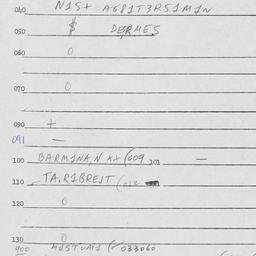 040 N1S+ AG81T3RS1M1N
050 $ DERMES
060 0
070 0
090 +
091 —
100 BARM1NA,N xx (009 101 —
110 TA.R1BREJT (012
120 0
130 0
900 M1STUM1 ( 033060